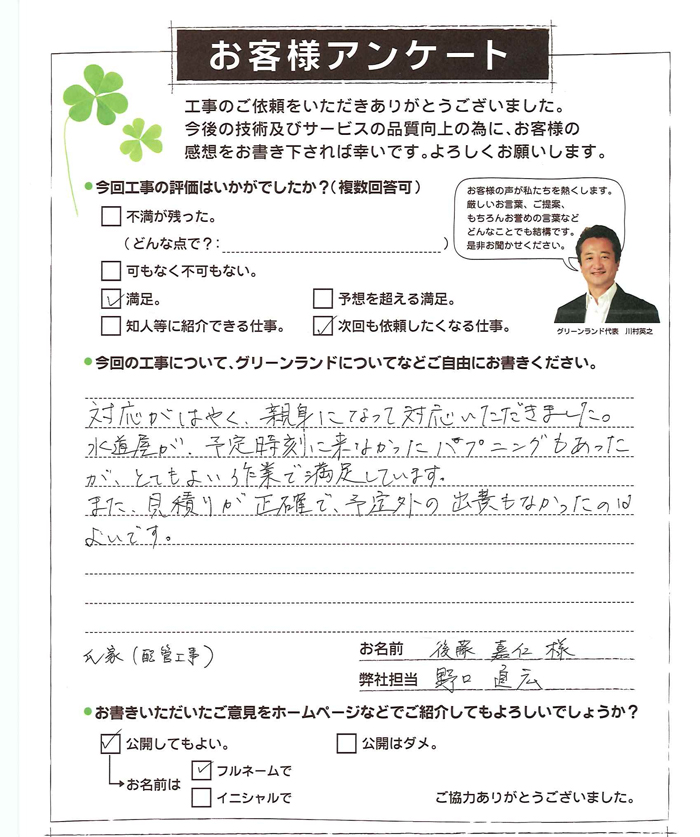 お客様アンケート
工事のご依頼をいただきありがとうございました。
今後の技術及びサービスの品質向上の為に、お客様の
感想をお書き下されば幸いです。よろしくお願いします。
今回工事の評価はいかがでしたか?(複数回答可)
不満が残った。
(どんな点で?: )
可もなく不可もない。
満足。
予想を超える満足。
知人等に紹介できる仕事。
次回も依頼したくなる仕事。
お客様の声が私たちを熱くします。
厳しいお言葉、ご提案、
もちろんお誉めの言葉など
どんなことでも結構です。
是非お聞かせください。
グリーンランド代表 川村英之
今回の工事について、グリーンランドについてなどご自由にお書きください。
対応がはやく、親身になって対応いただきました。
水道屋が、予定時刻に来なかったハプニングもあった
が、とてもよい作業で満足しています。
また、見積りが正確で、予定外の出費もなかったのは
よいです。
(配管工事)
お名前 後藤 嘉仁 様
弊社担当 野口 直広
お書きいただいたご意見をホームページなどでご紹介してもよろしいでしょうか?
公開してもよい。
公開はダメ。
お名前は
フルネームで
イニシャルで
ご協力ありがとうございました。